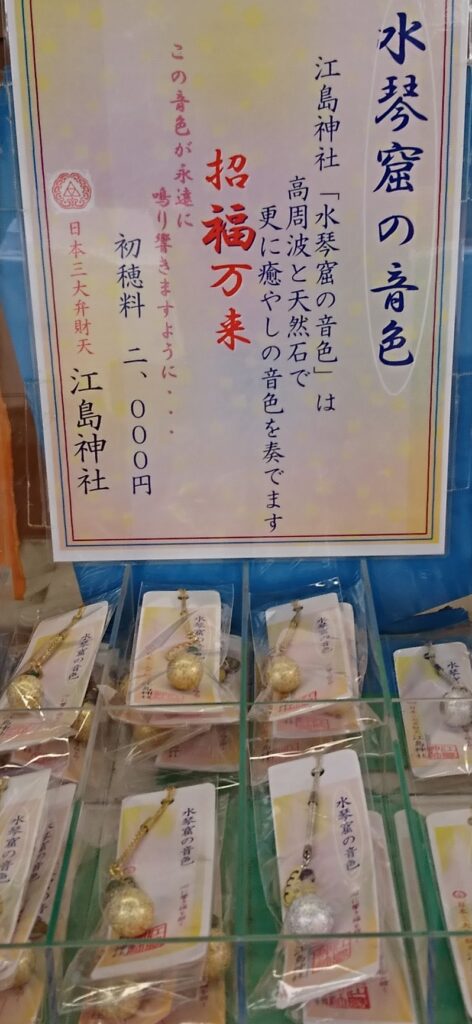 水琴窟の音色
江島神社「水琴窟の音色」は
高周波と天然石で
更に癒やしの音色を奏でます
招福万来
この音色が永遠に
鳴り響きますように・・・
初穂料 二、000円
日本三大弁財天
江島神社
水琴窟の音色
水琴窟の音色
水琴窟の音色
水琴窟の音色
水琴窟の音色
水琴窟の音色